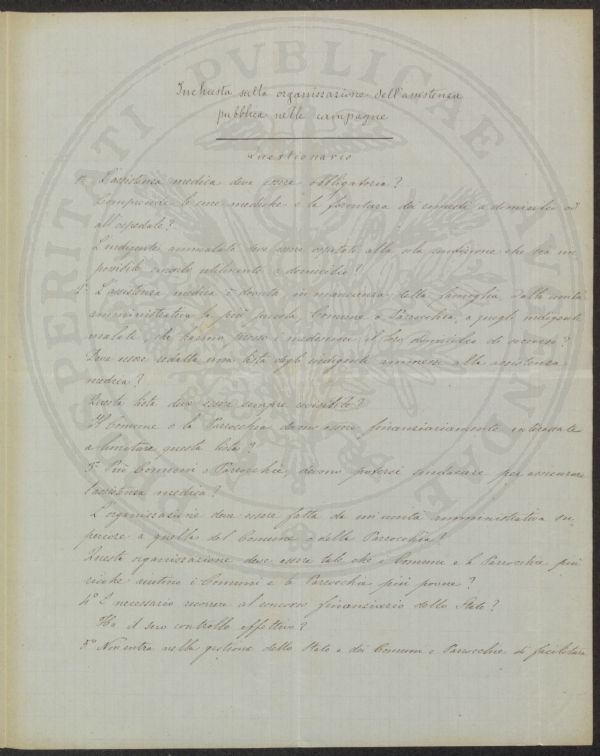 PROSPERITATI PVBLICAE AVGENDAE
Inchiesta sulla organizzazione dell'assistenza
pubblica nelle campagne
Questionario
1º L'assistenza medica deve essere obbligatoria?
Comprendere le cure mediche e la fornitura dei rimedi a domicilio od
all'ospedale?
L'indigente ammalato deve essere ospitato alla sola condizione che sia im-
possibile curarlo utilmente a domicilio?
2º L'assistenza medica è dovuta, in mancanza della famiglia, dalla unità
amministrativa la più piccola, Comune o Parrocchia, a quegli indigenti
malati che hanno presso i medesimi il loro domicilio di soccorso?
Deve essere redatta una lista degli indigenti ammessi alla assistenza
medica?
Questa lista deve essere sempre rivedibile?
Il Comune o la Parrocchia devono essere finanziariamente interessate
a limitare questa lista?
3º Più Comuni o Parrocchie devono potersi sindacare per assicurare
l'assistenza medica?
L'organizzazione deve essere fatta da un'unità amministrativa su-
periore a quella del Comune o della Parrocchia?
Questa organizzazione deve essere tale che i Comuni e le Parrocchie più
ricche aiutino i Comuni e le Parrocchie più povere?
4º È necessario ricorrere al concorso finanziario dello Stato?
Ha il suo controllo effettivo?
5º Non entra nella gestione dello Stato e dei Comuni e Parrocchie di facilitare